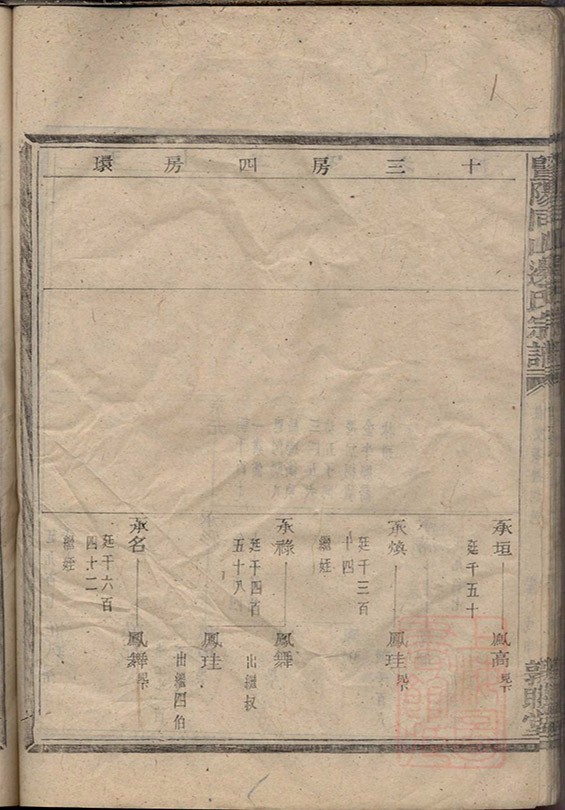 暨陽同山邊氏宗譜
敦睦堂
十三房四房環
承垣
鳳高
廷千五十
承煥
鳳珪
廷千三百
十四
繼姪
承祿
鳳舞
廷千四百
五十八
出繼叔
鳳珪
出繼四伯
承名
鳳舞
廷千六百
四十二
繼姪